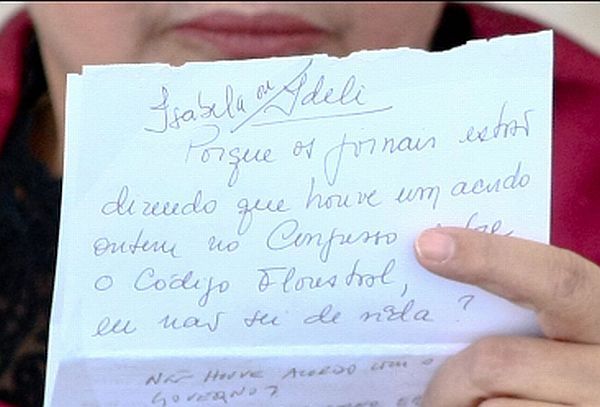 Isabela ou Ideli
Porque os jornais estão
dizendo que houve um acordo
ontem no Congresso sobre
o Código Florestal,
eu não sei de nada?
NÃO HOUVE ACORDO COM O
GOVERNO?